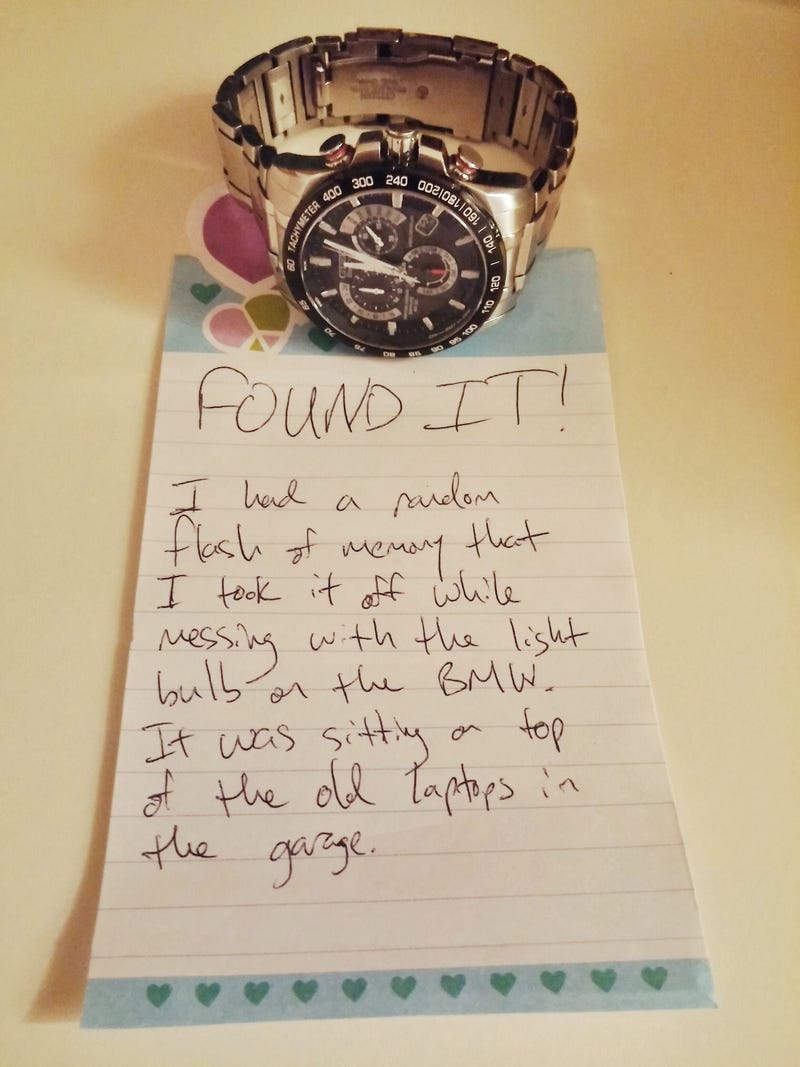 TACHYMETER 400 300 240 200 180 160 140 120 110 100 95 90 85 80 75 70 65 60
FOUND IT!
I had a random
flash of memory that
I took it off while
messing with the light
bulb on the BMW.
It was sitting on top
of the old laptops in
the garage.